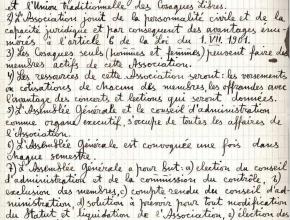 et l'Union Traditionnelle des Cosaques Libres.
2) L'Association jouit de la personnalité civile et de la
capacité juridique et par conséquent des avantages énu-
mérés à l'article 6 de la Loi du 1.VII.1901.
3) Les Cosaques seuls (hommes et femmes) peuvent faire des
membres actifs de cette Association.
4) Les ressources de cette Association seront: les versements
ou cotisations de chacun des membres, les offrandes avec
l'avantage des concerts et lections qui seront données.
5) L'Assemblée Générale et le conseil d'administration
comme organe executif, s'occupe de toutes les affaires de
l'Association.
6) L'Assemblée Générale est convoquée une fois dans
chaque semestre.
7) L'Assemblée Générale a pour but: a) election du conseil
d'administration et de la commission du controle, b)
exclusion des membres, c) compte rendu du conseil d'ad-
ministration, d) solution à prévoir pour tout modification
du Statut et liquidation de l'Association, e) élection des